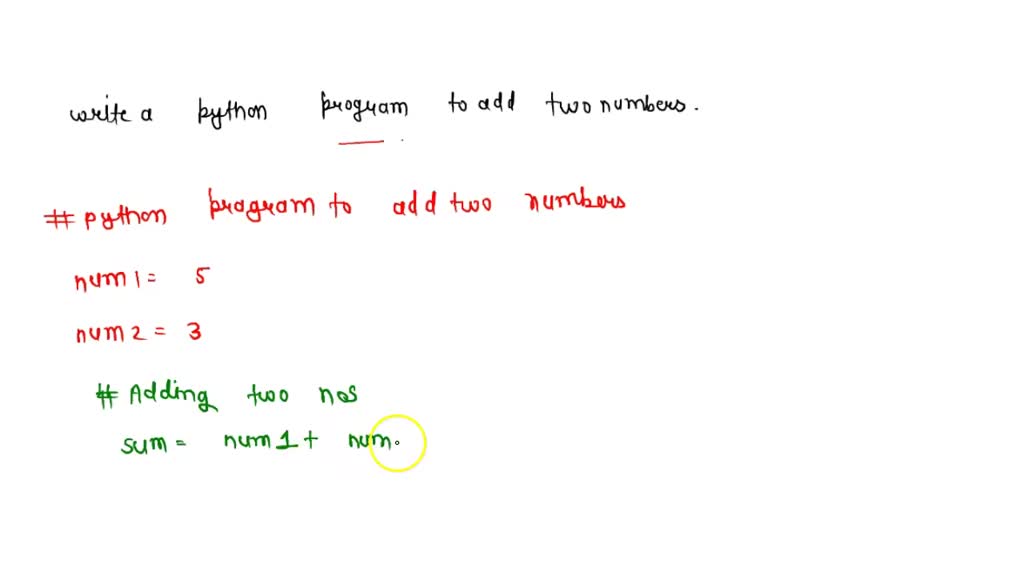 write a python program to add two numbers.
# python program to add two numbers
num1 = 5
num2 = 3
# Adding two nos
sum = num1 + num